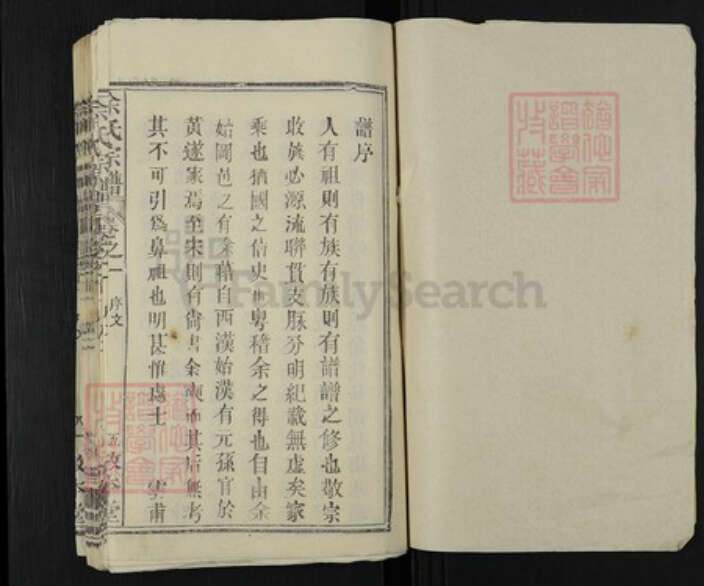 譜序
人有祖則有族有族則有譜譜之修也敬宗
收族必源流聯貫支脈分明紀載無虛矣家
乘也猶國之信史也粵稽余之得也自由余
始國邑之有余藉自西漢始漢有元孫官於
黃遂家焉至宋則有尚書余而其后無考
其不可引為鼻祖也明甚惟處士雲甫
余氏宗譜
卷之一
序文
敬本堂
FamilySearch